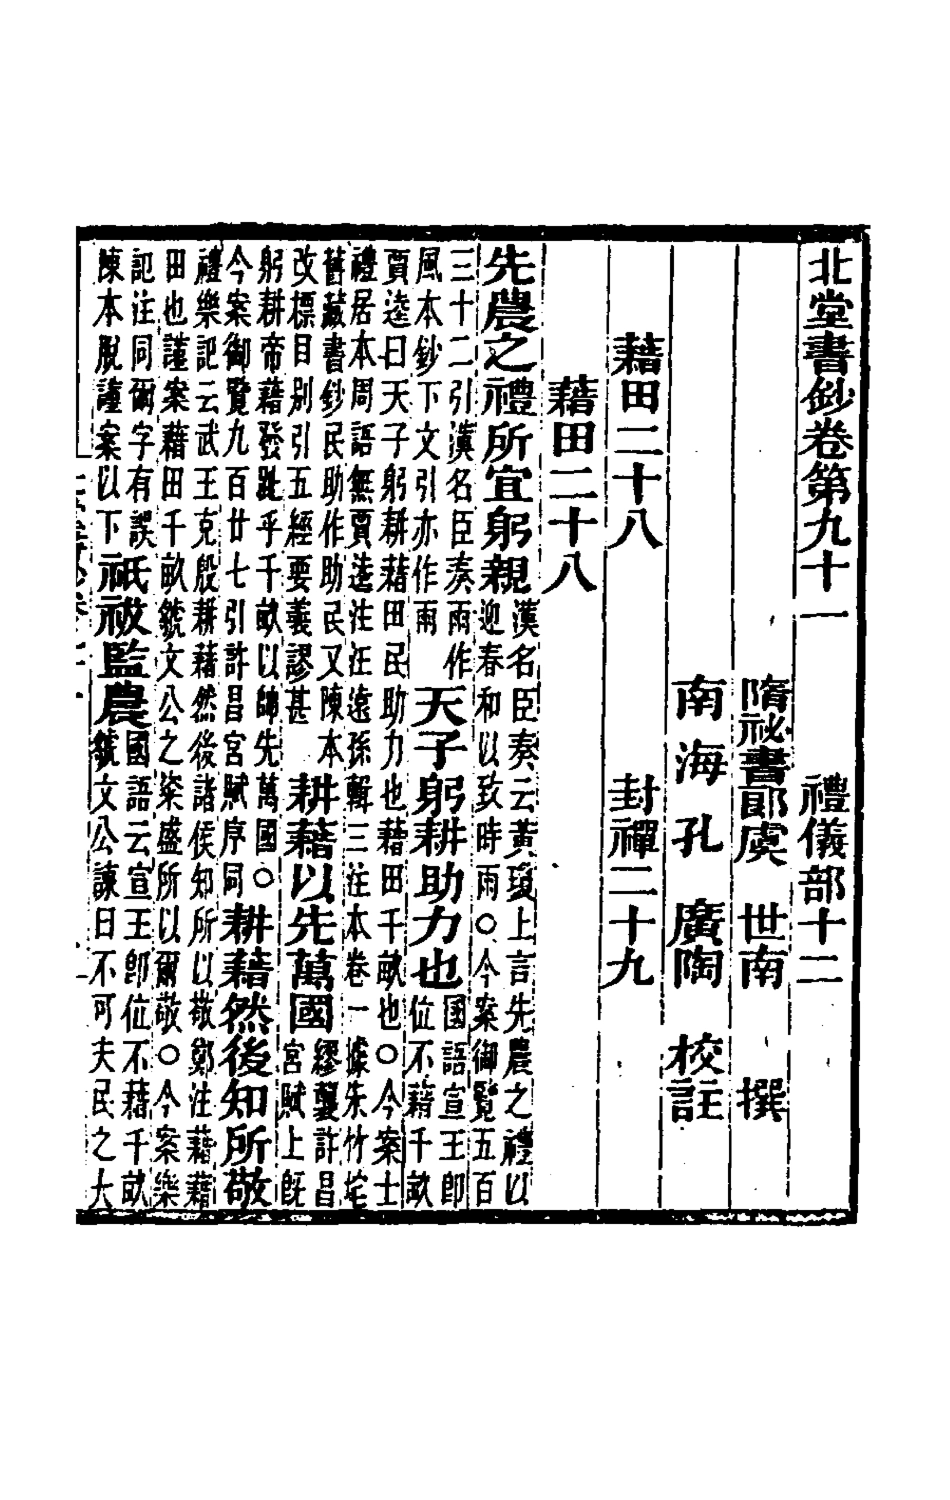 北堂書鈔卷第九十一　禮儀部十二
隋祕書郎虞　世南　撰
南海孔　廣陶　校註
藉田二十八　封禪二十九
藉田二十八
先農之禮所宜躬親漢名臣奏云黃瓊上言先農之禮以
迎春和以致時雨○今案御覽五百
三十二引漢名臣奏雨作
風本鈔下文引亦作雨　天子躬耕助力也國語宣王卽
位不藉千畝
賈逵曰天子躬耕藉田民助力也藉田千畝也○今案士
禮居本周語無賈逵注汪遠孫輯三注本卷一據朱竹垞
舊藏書鈔民助作助民又陳本
改標目別引五經要義謬甚　耕藉以先萬國繆襲許昌
宮賦上旣
躬耕帝藉發趾乎千畝以帥先萬國○
今案御覽九百廿七引許昌宮賦序同　耕藉然後知所敬
禮樂記云武王克殷耕藉然後諸侯知所以敬鄭注藉藉
田也謹案藉田千畝虢文公之粢盛所以爾敬○今案樂
記注同爾字有誤
陳本脫謹案以下　祇祓監農國語云宣王卽位不藉千畝
虢文公諫曰不可夫民之大